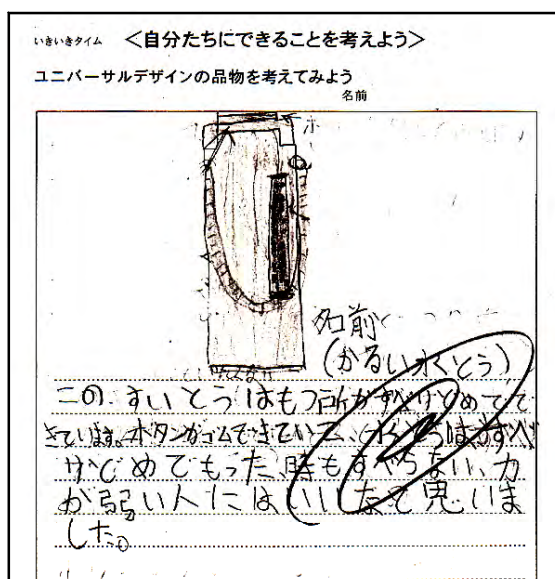 いきいきタイム <自分たちにできることを考えよう>
ユニバーサルデザインの品物を考えてみよう
名前
名前
(かるい水とう)
この すいとうはもつ所がすべりどめでで
きています。ボタンがゴムできていて、 はすべ
りどめてもった時もすべらない、力
が弱い人にはいいなって思いま
した。